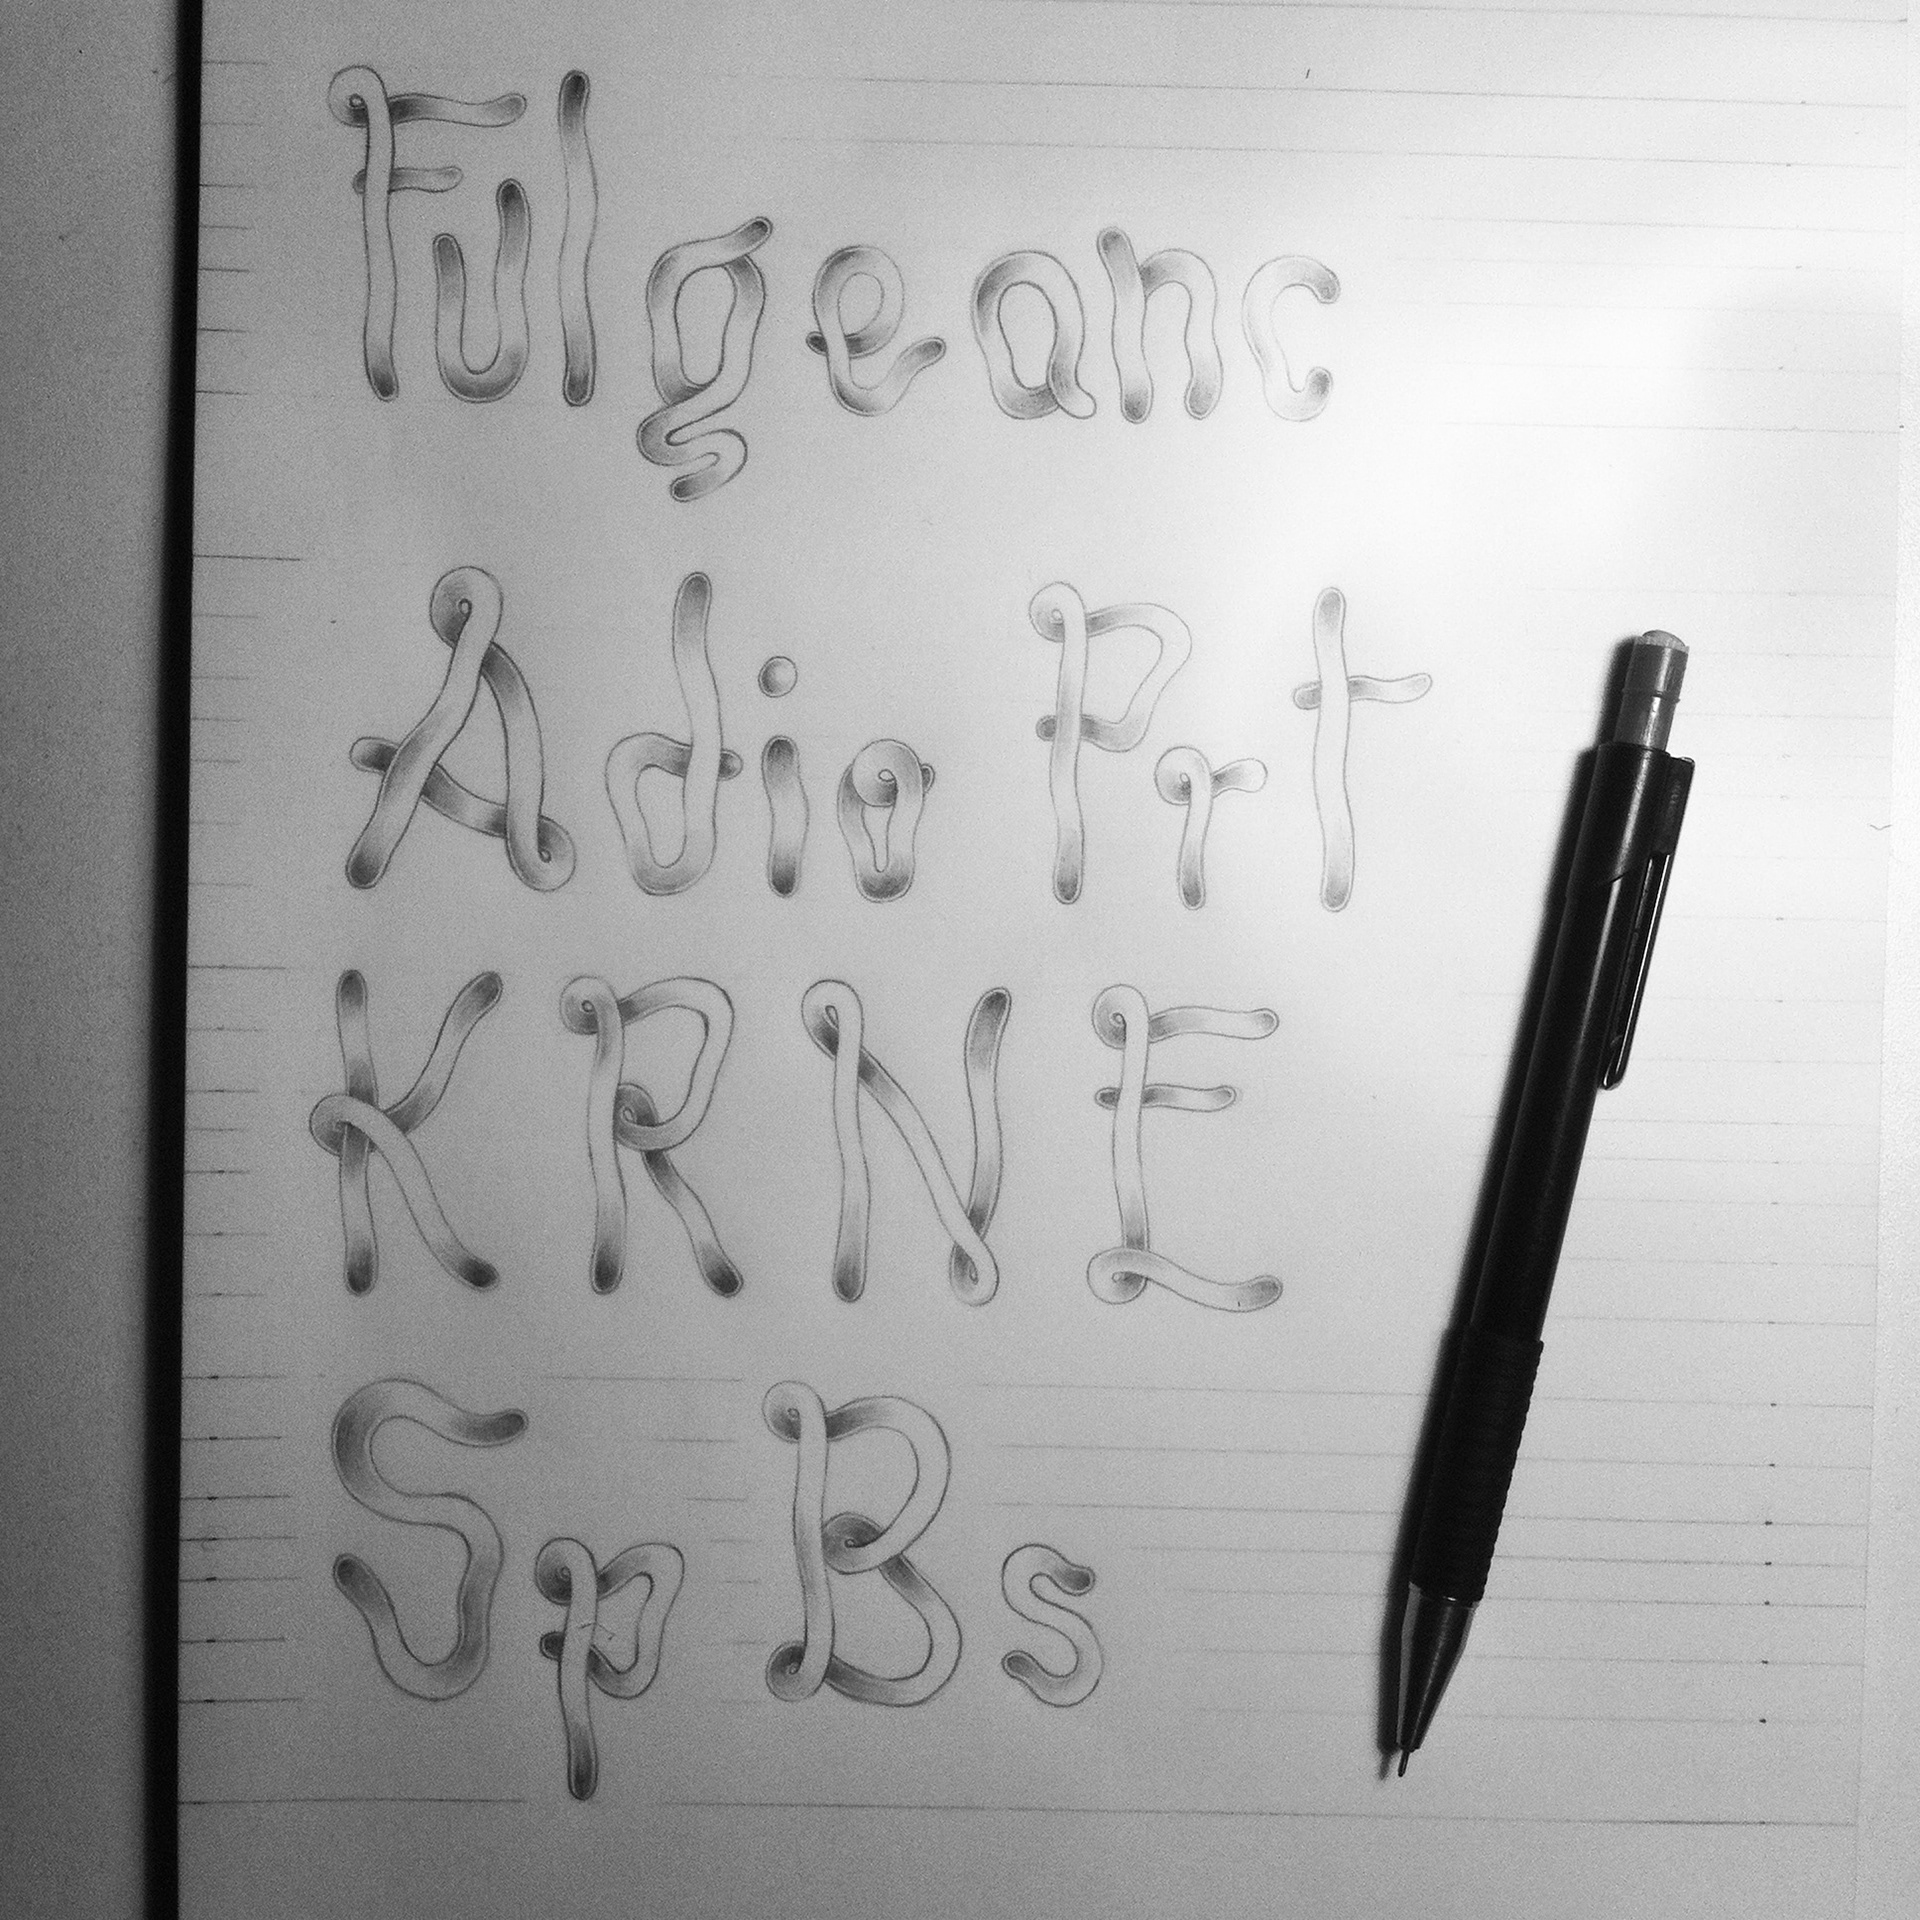 Fulgeanc
Adio Prt
KRNE
Sp Bs